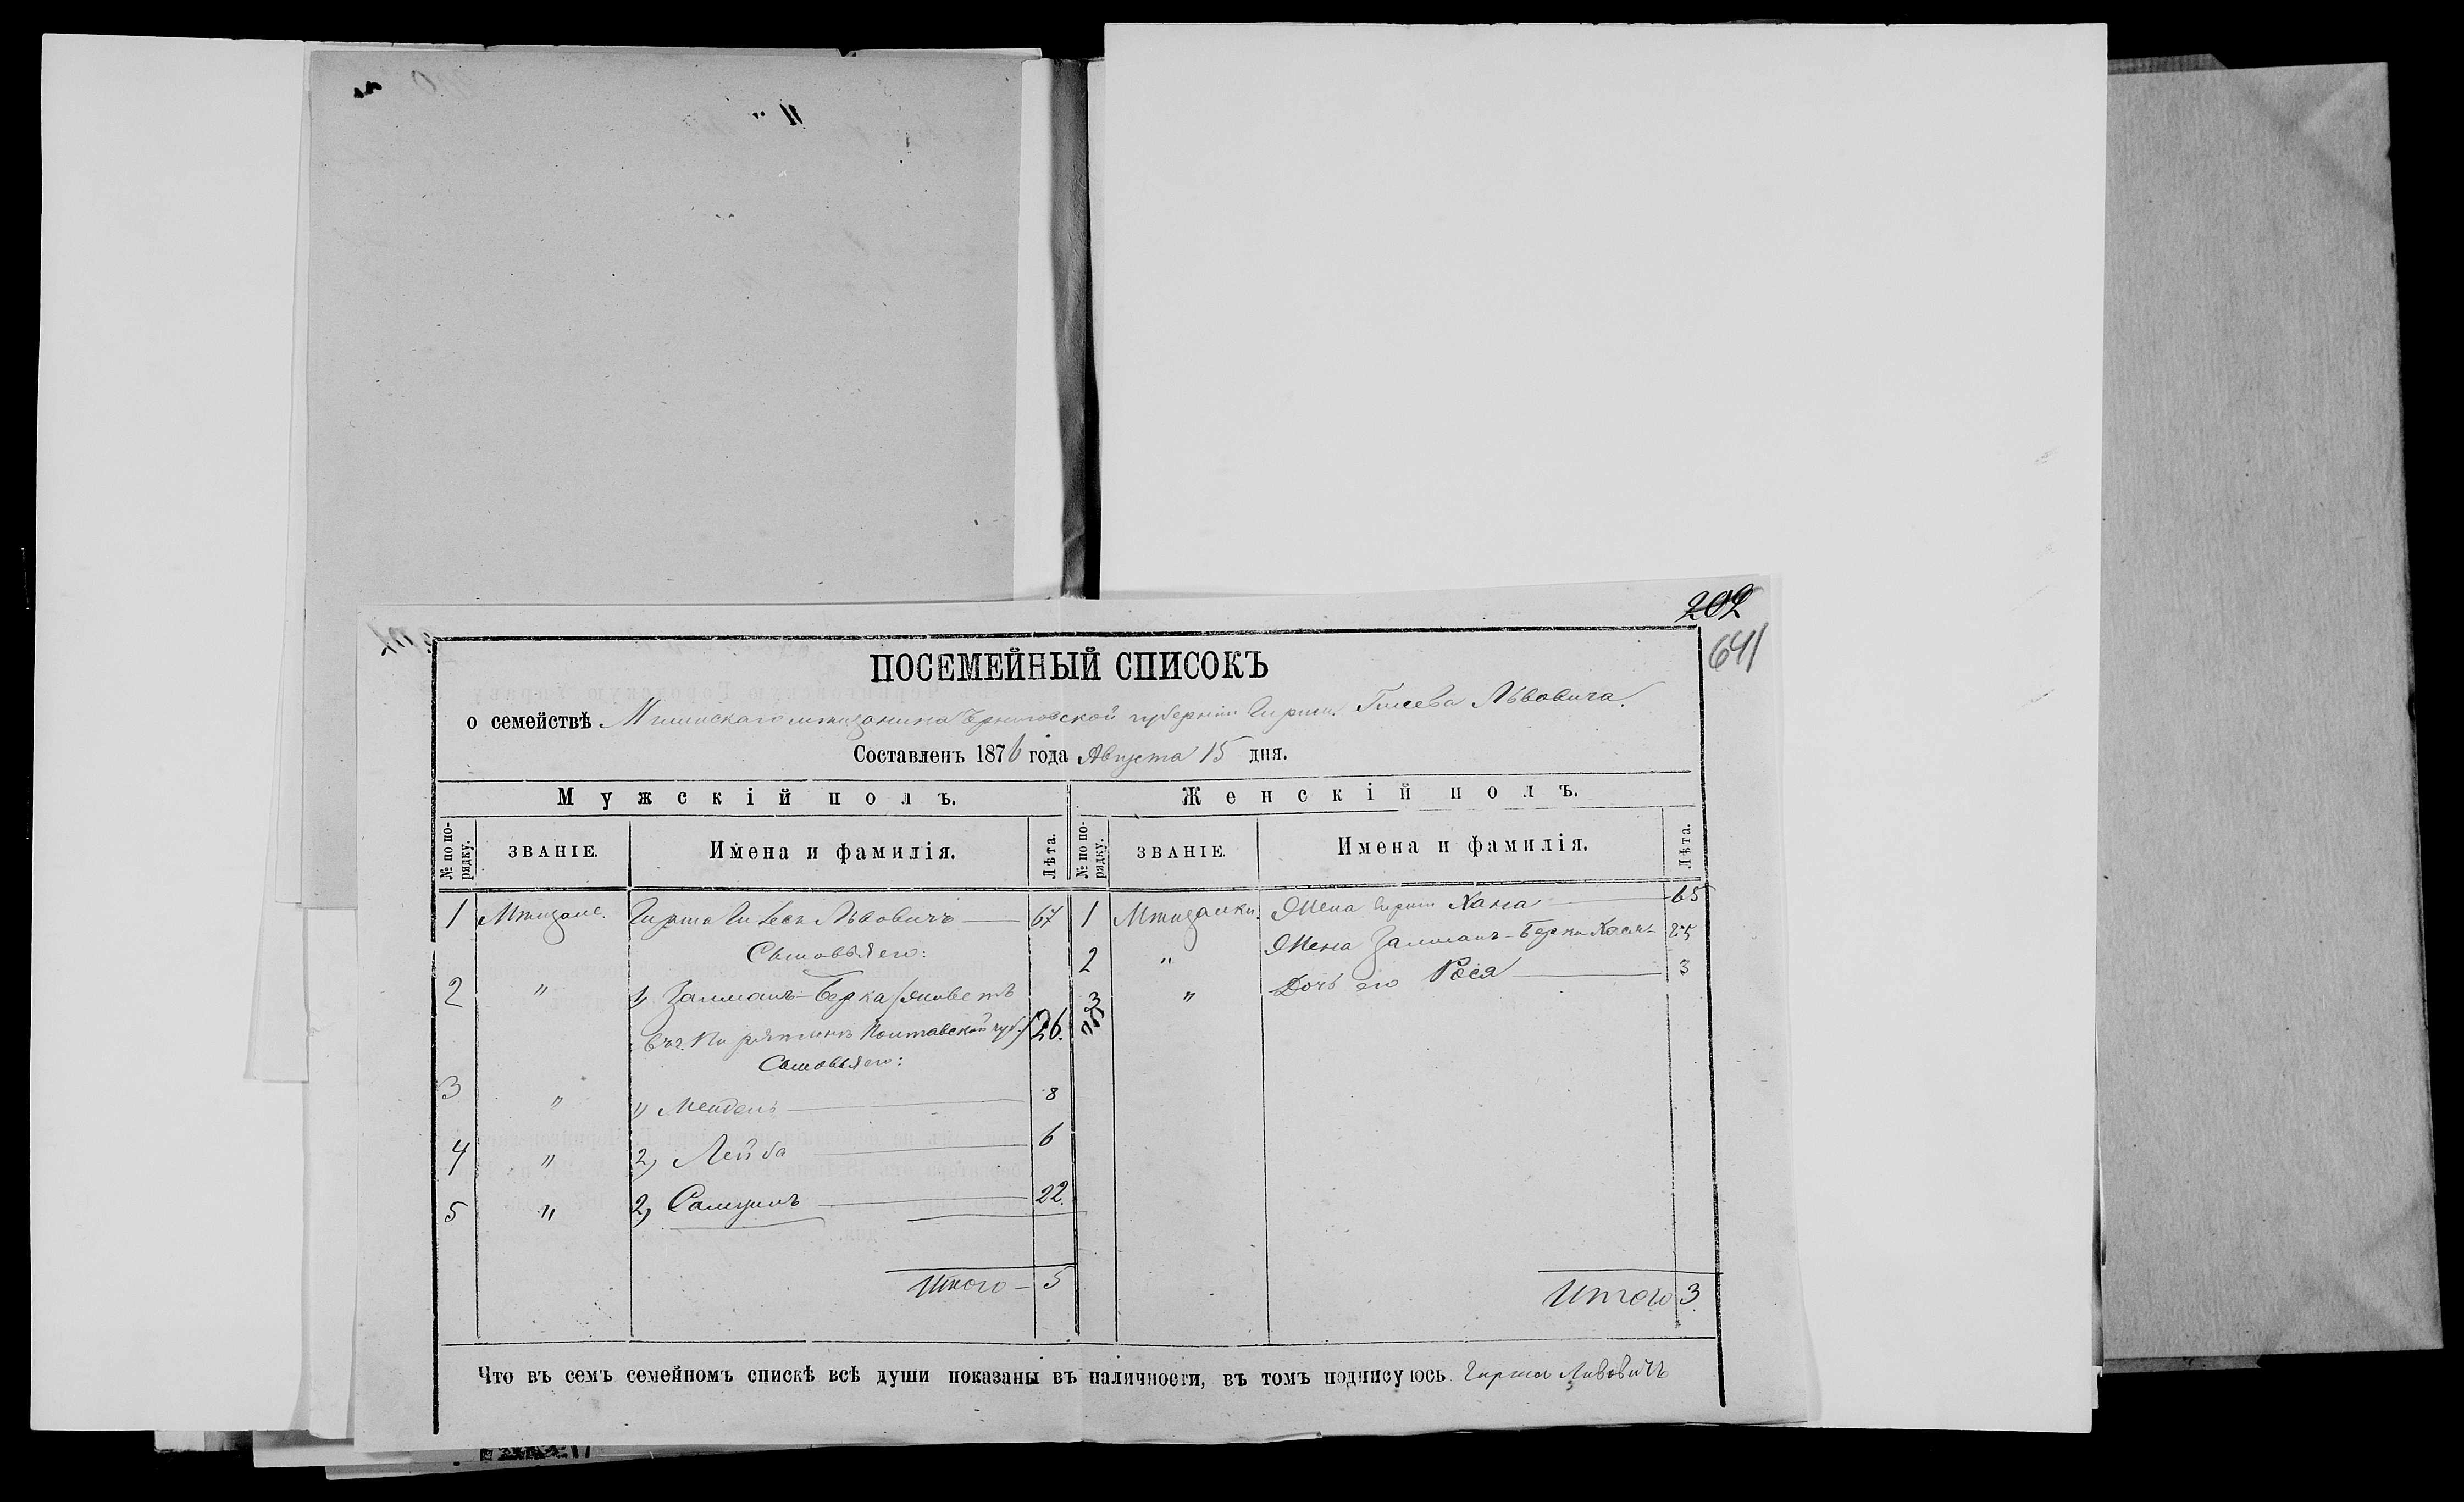 202
641
ПОСЕМЕЙНЫЙ СПИСОКЪ
о семействѣ мѣщанина Черниговской губернiи Гирши Львовича.
Составленъ 1876 года Августа 15 дня.
Мужскій полъ. Женскій полъ.
№ по порядку. ЗВАНІЕ. Имена и фамилія. Лѣта. № по порядку. ЗВАНІЕ. Имена и фамилія. Лѣта.
1 Мѣщане. Гирша Львовичъ — 67 1 Мѣщанки. Жена Гирши Хана — 65
Сыновья его: 2 " Жена Залманъ-Берки 25
2 " 1) Залманъ-Берка (живетъ 3 " Дочь его Рася — 3
въ г. Полтавской губ.) 26.
Сыновья его:
3 " 1) Мендель — 8
4 " 2) Лейба — 6
5 " 2) Самуилъ — 22.
Итого — 5 Итого 3
Что въ семъ семейномъ спискѣ всѣ души показаны въ наличности, въ томъ подписуюсь Гирша Львовичъ